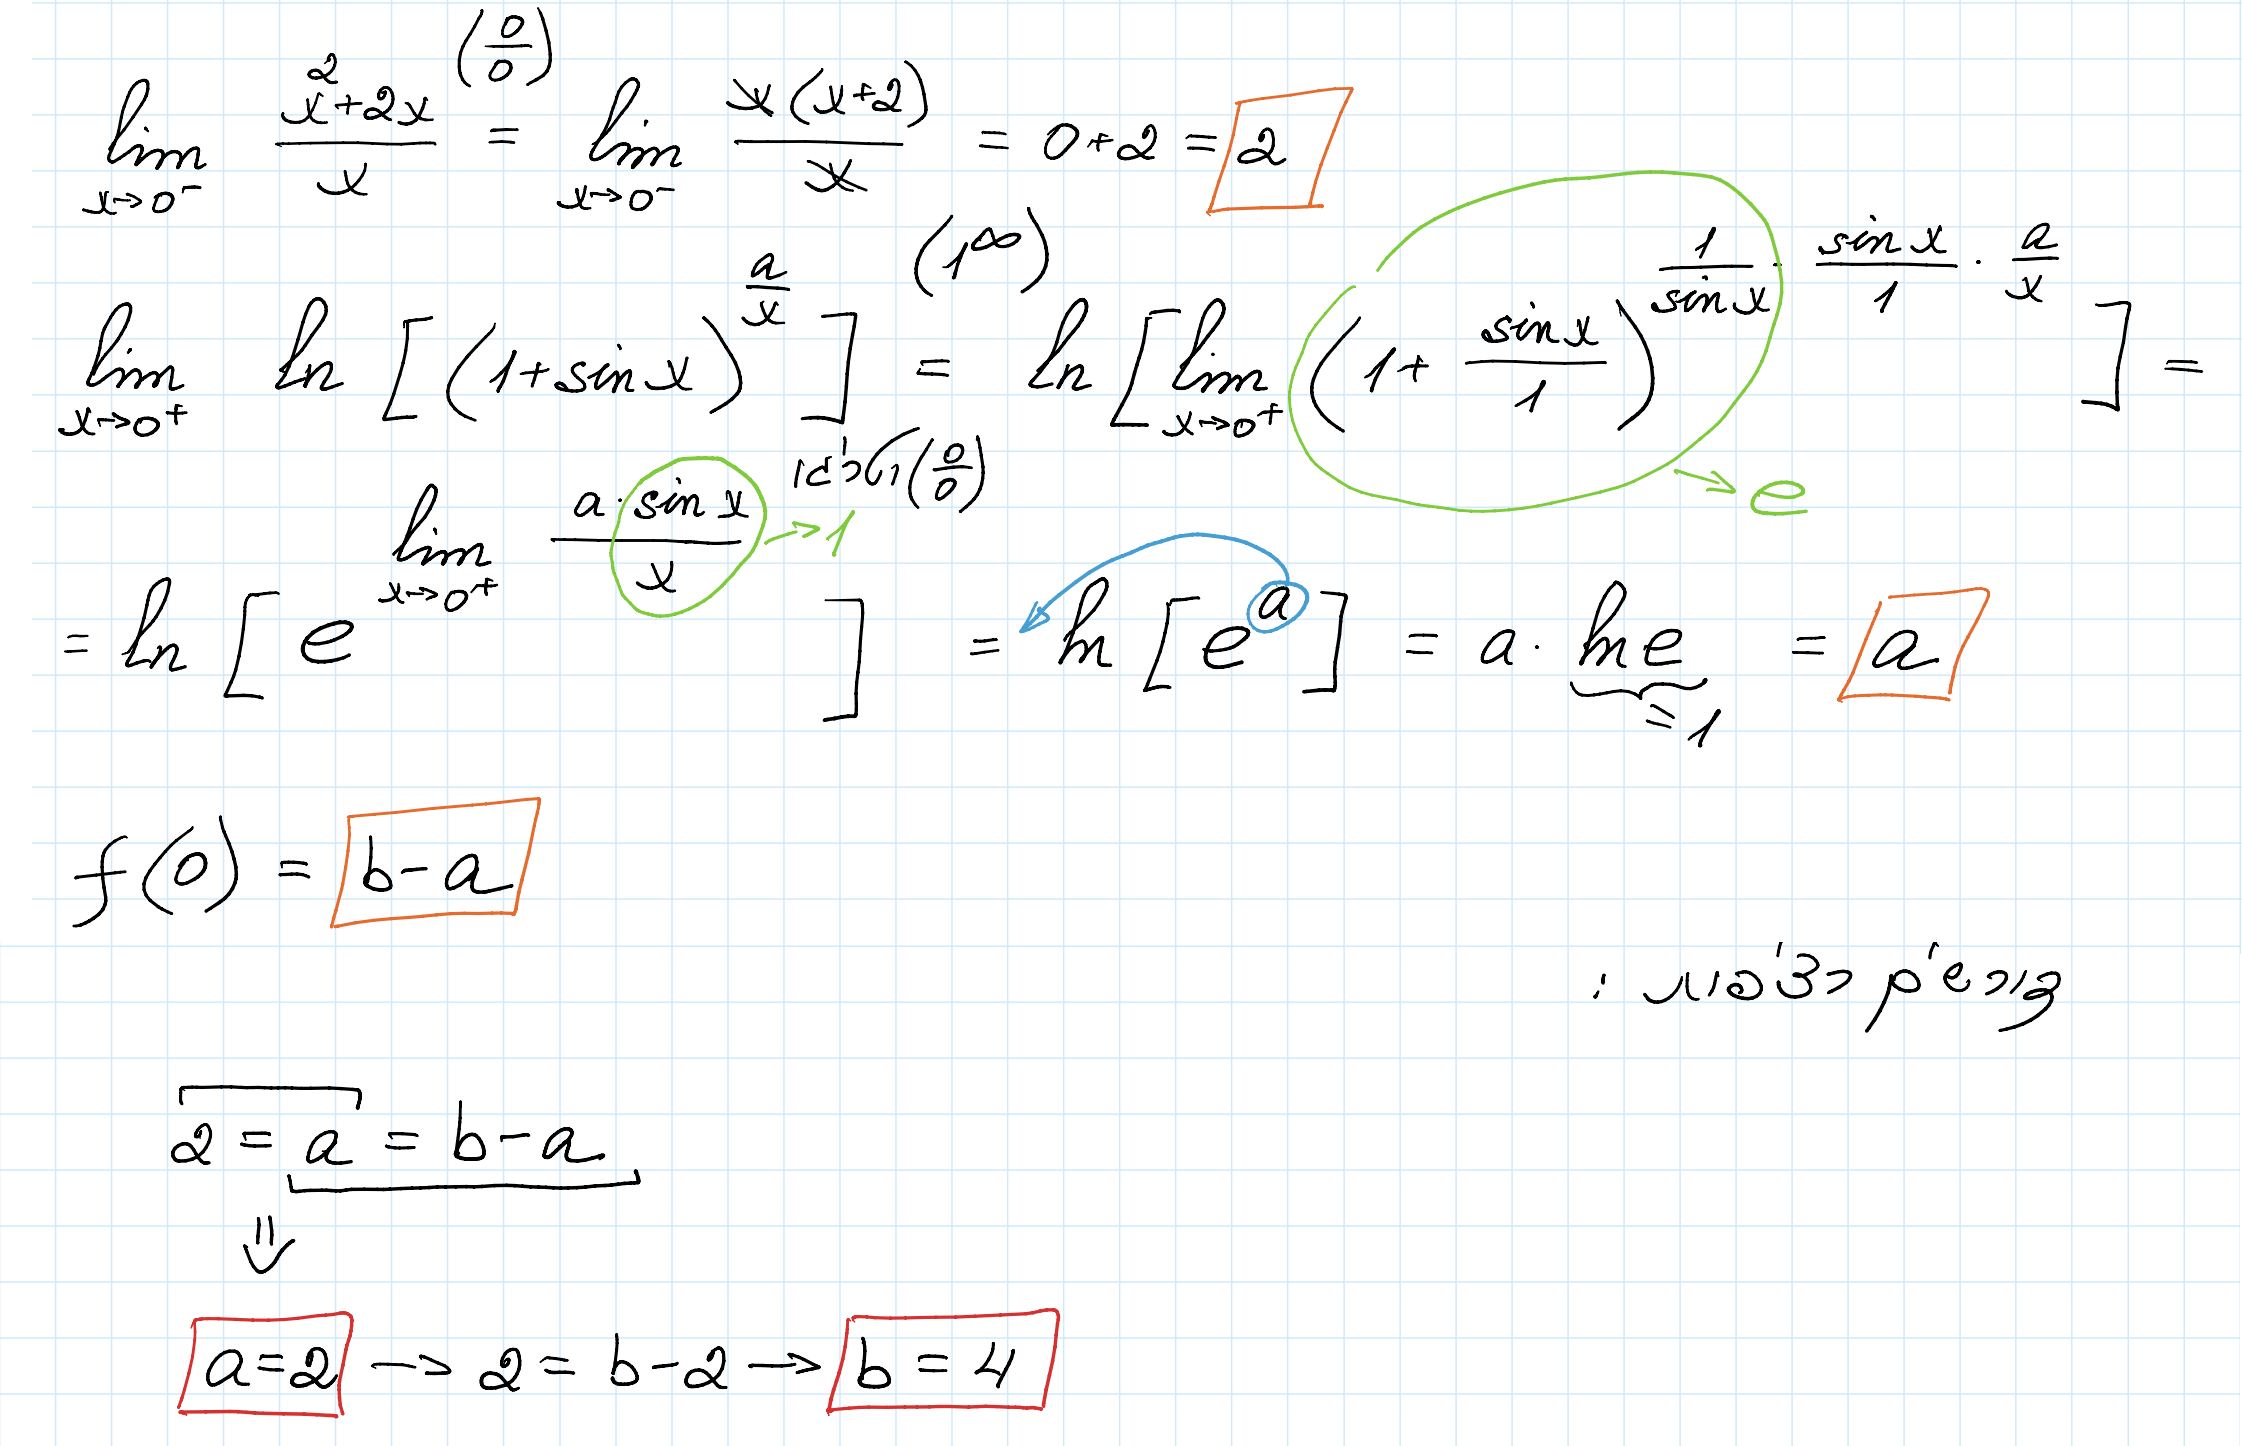 lim_{x→0⁻} (x²+2x)/x (0/0) = lim_{x→0⁻} x(x+2)/x = 0+2 = 2
lim_{x→0⁺} ln[(1+sin x)^{a/x}] (1^∞) = ln[lim_{x→0⁺} (1 + sin x/1)^{1/sin x · sin x/1 · a/x}] = → e
= ln[e^{lim_{x→0⁺} a·sin x/x}] → 1 (0/0) = ln[e^a] = a · ln e = a
= 1
f(0) = b-a
נדרוש רציפות :
2 = a = b-a
⇓
a=2 → 2 = b-2 → b = 4